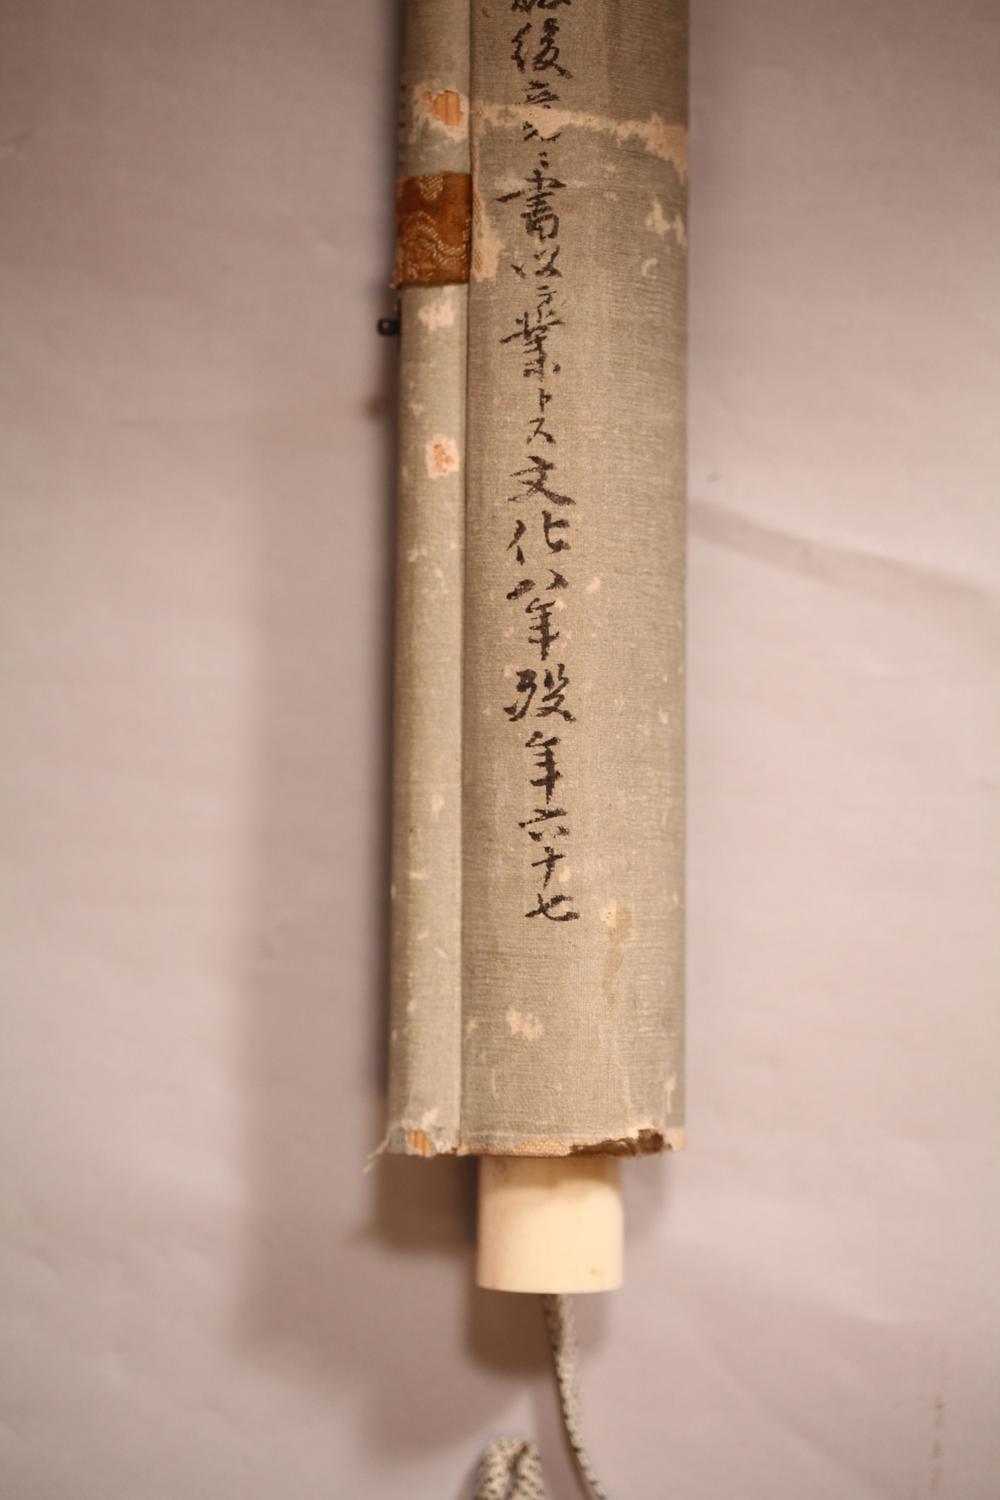 後専ラ書以テ業トス文化八年歿年六十七